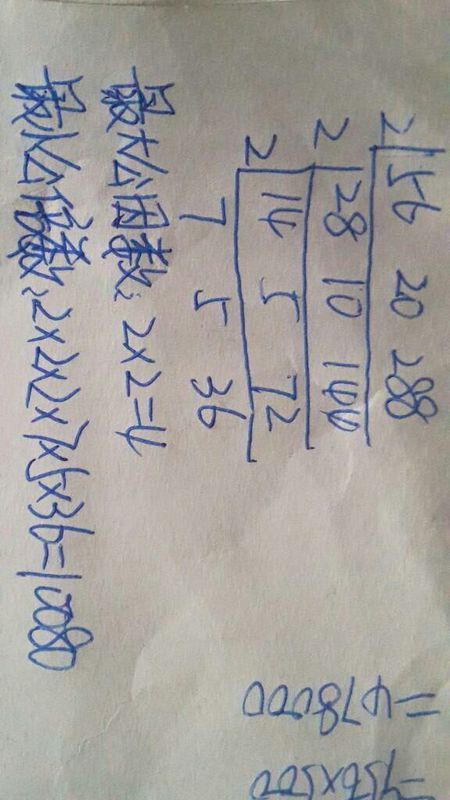 2 56 20 288
2 28 10 144
2 14 5 72
7 5 36
最大公因数: 2×2=4
最小公倍数: 2×2×2×7×5×36=10080
=478000
=956×500